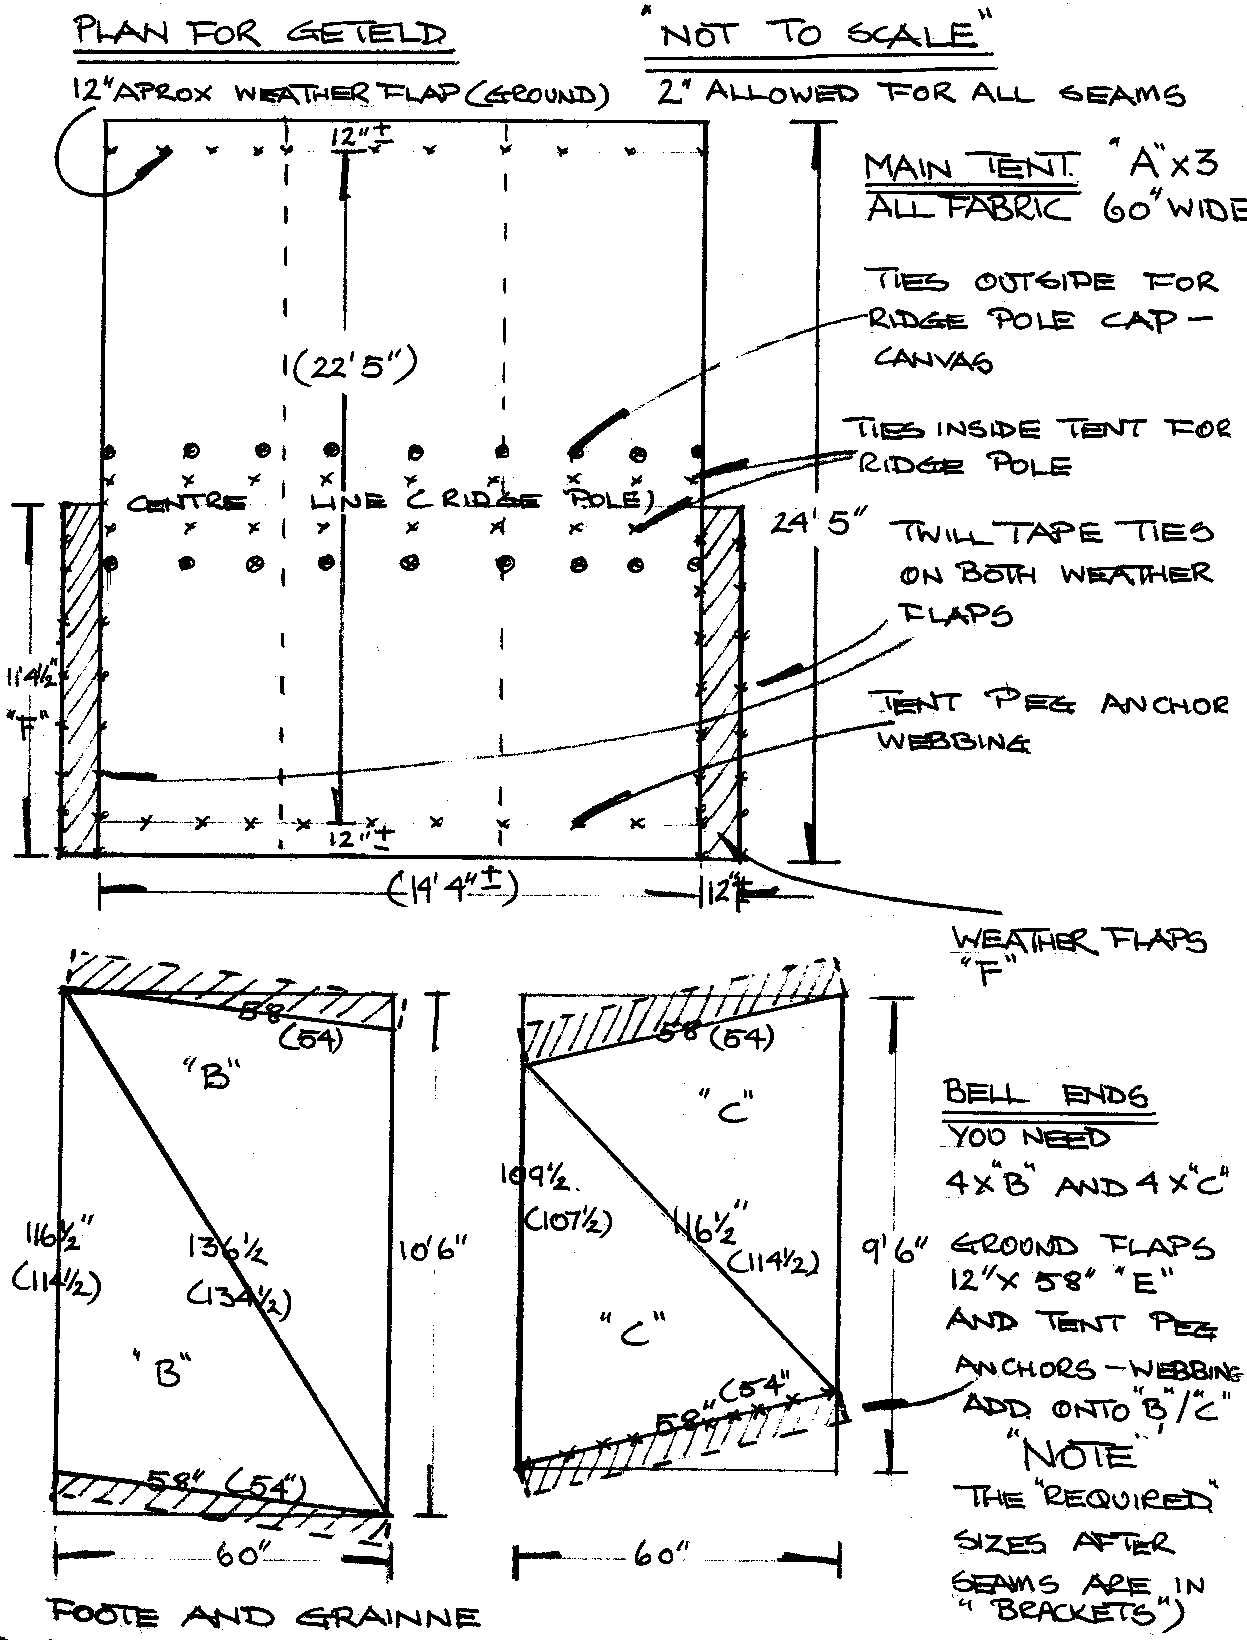 PLAN FOR GETELD
"NOT TO SCALE"
12" APROX WEATHER FLAP (GROUND)
2" ALLOWED FOR ALL SEAMS
12" ±
MAIN TENT "A" x 3
ALL FABRIC 60" WIDE
TIES OUTSIDE FOR
RIDGE POLE CAP -
CANVAS
(22' 5")
TIES INSIDE TENT FOR
RIDGE POLE
CENTRE LINE (RIDGE POLE)
24' 5"
TWILL TAPE TIES
ON BOTH WEATHER
FLAPS
11'4½"
"F"
TENT PEG ANCHOR
WEBBING
12" ±
(14' 4" ±)
12" ±
WEATHER FLAPS
"F"
58
(54)
"B"
116½"
(114½)
136½
(134½)
10'6"
"B"
58" (54")
60"
58 (54)
"C"
109½
(107½)
116½"
(114½)
9'6"
"C"
58" (54"
60"
BELL ENDS
YOU NEED
4 x "B" AND 4 x "C"
GROUND FLAPS
12" x 58" "E"
AND TENT PEG
ANCHORS - WEBBING
ADD ONTO "B"/"C"
"NOTE"
THE "REQUIRED"
SIZES AFTER
SEAMS ARE IN
"BRACKETS")
FOOTE AND GRAINNE